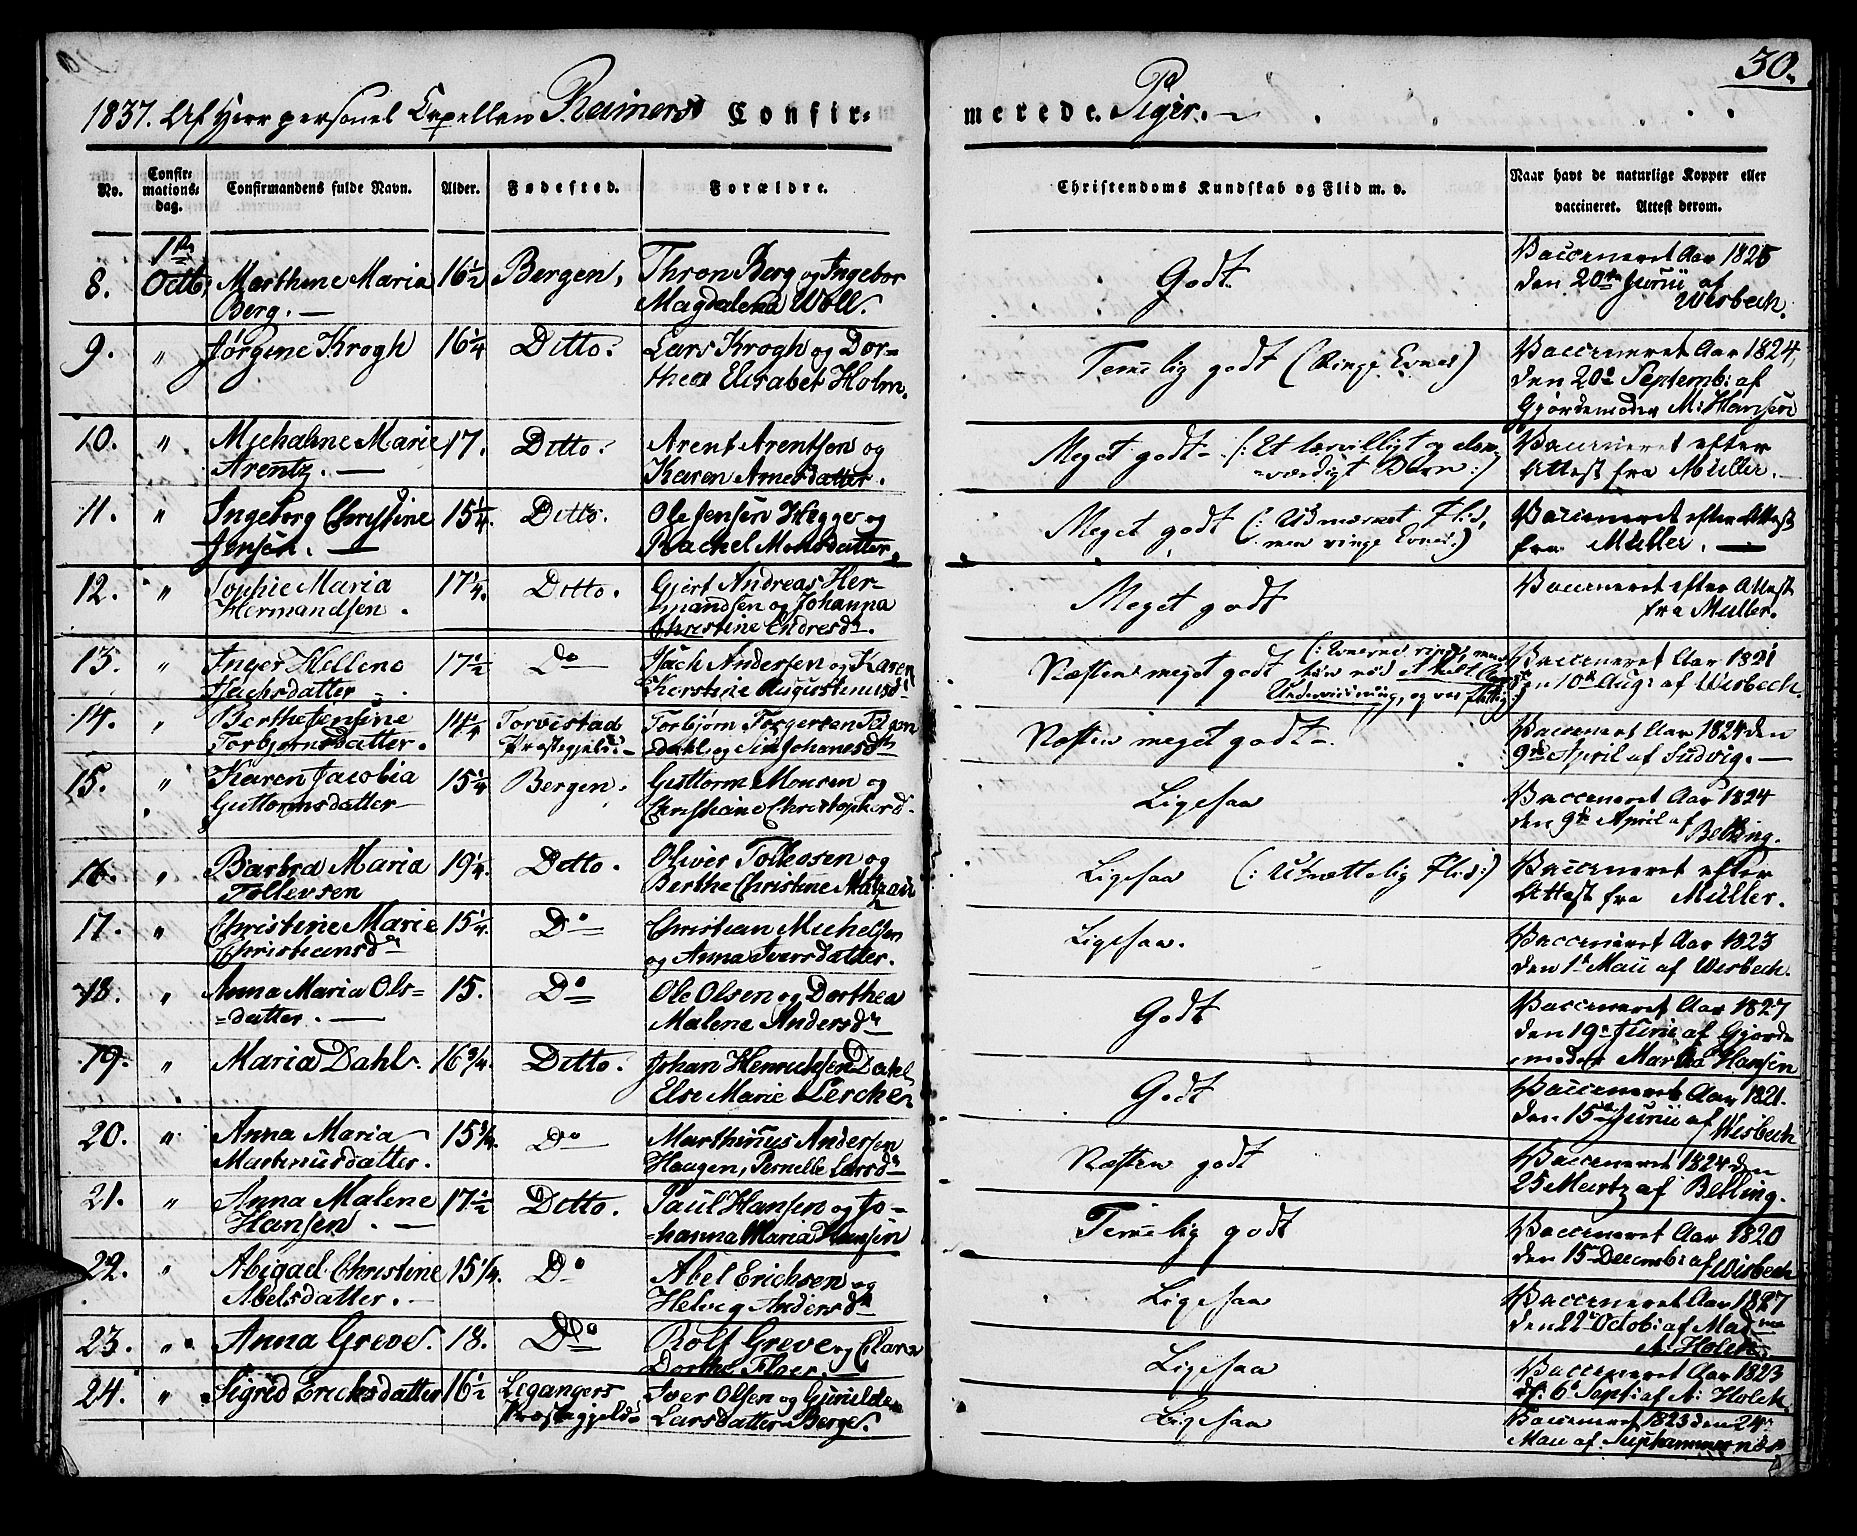 30.
1837. Af Herr personel Capellan Reimers Confir-
merede Piger.
No.
Confir-
mations-
dag.
Confirmandens fulde Navn.
Alder.
Fødested.
Forældre.
Christendoms Kundskab og Flid m. v.
Naar havt de naturlige Kopper eller
vaccineret. Attest derom.
8. 1ste Octb. Marthine Maria 16½ Bergen, Thron Berg og Ingebor
Berg. Magdalena Woll.
Godt
Vaccineret Aar 1825
den 20de Junii af
Wisbech.
9. " Jørgine Krogh 16¼ Ditto. Lars Krogh og Dor-
thea Elisabet Holm.
Temelig godt (Ringe Evner)
Vaccineret Aar 1824,
den 20de Septemb: af
Gjordemoder M: Hansen
10. " Michaline Marie 17. Ditto. Arent Arentsen og
Arentz. Karen Arnesdatter.
Meget godt (: Et lærvilligt og elsk-
værdigt Barn:)
Vaccineret efter
Attest fra Müller.
11. " Ingeborg Christine 15¼ Ditto. Ole Jensen Hegge og
Jensen. Rachel Monsdatter.
Meget godt (: Udmærket Flid,
men ringe Evner:)
Vaccineret efter Attest
fra Müller.
12. " Sophie Maria 17¼ Ditto. Gjert Andreas Her-
Hermandsen. mandsen og Johanna
Christine Endresdr.
Meget godt
Vaccineret efter Attest
fra Müller.
13. " Inger Hellene 17½ Do Hach Andersen og Karen
Hachsdatter Kerstine Augustinusd:
Næsten meget godt
Underviisning, og var flittig
Vaccineret Aar 1821
den 10de Aug: af Wisbech.
14. " Berthe Jensine 14¼ Torvestad Torbjørn Torgersen
Torbjørnsdatter. Præstegjeld: dahl og Siri Johanesdr
Næsten meget godt
Vaccineret Aar 1824 den
9de April af Ludvig.
15. " Karen Jacobia 15¼ Bergen. Guttorm Monsen og
Guttormsdatter Christiane Christophersd.
Ligesaa
Vaccineret Aar 1824
den 9de April af
Belling.
16. " Barbra Maria 19¼ Ditto. Oliver Tollevsen og
Tollevsen Berthe Christine
Ligesaa (: Utrættelig Flid:)
Vaccineret efter
Attest fra Müller.
17. " Christine Marie 15¼ Do Christian Michelsen
Christiansdr og Anna Iversdatter.
Ligesaa.
Vaccineret Aar 1823
den 1ste Maii af Wisbech.
18. " Anna Maria Ols- 15. Do Ole Olsen og Dorthea
datter. Malene Andersdr
Godt
Vaccineret Aar 1827
den 19de Junii af Gjorde-
moder Martha Hansen
19. " Maria Dahl. 16¾. Ditto. Johan Henrichsen Dahl
Else Marie Lerchen
Godt
Vaccineret Aar 1821.
den 15de Junii af Wisbech
20. " Anna Maria 15¾. Do Marthinus Andersen
Martinusdatter. Haagen, Pernelle Larsdr
Næsten godt
Vaccineret 1824 den
25 Martz af Belling.
21. " Anna Malene 17½ Ditto. Paul Hansen og Jo-
Hansen. hanna Maria Hansen
Temelig godt
Vaccineret Aar 1820
den 15de Decemb: af Wisbech
22. " Abigael Christine 15¼. Do Abel Erichsen og
Abelsdatter. Helvig Andersdr
Ligesaa
Vaccineret Aar 1827
den 22de Octob: af Madme
A: Holch.
23. " Anna Greve. 18. Do Rolf Greve og Clara
Dorthe Floer.
Ligesaa
Vaccineret Aar 1823
d: 6te Sept: af A: Holck.
24. " Sigrid Ericksdatter 16½ Leganger Iver Olsen og Gunilde
Præstegjeld Larsdatter Berge.
Ligesaa
Vaccineret 1823 den 24de
Maii af